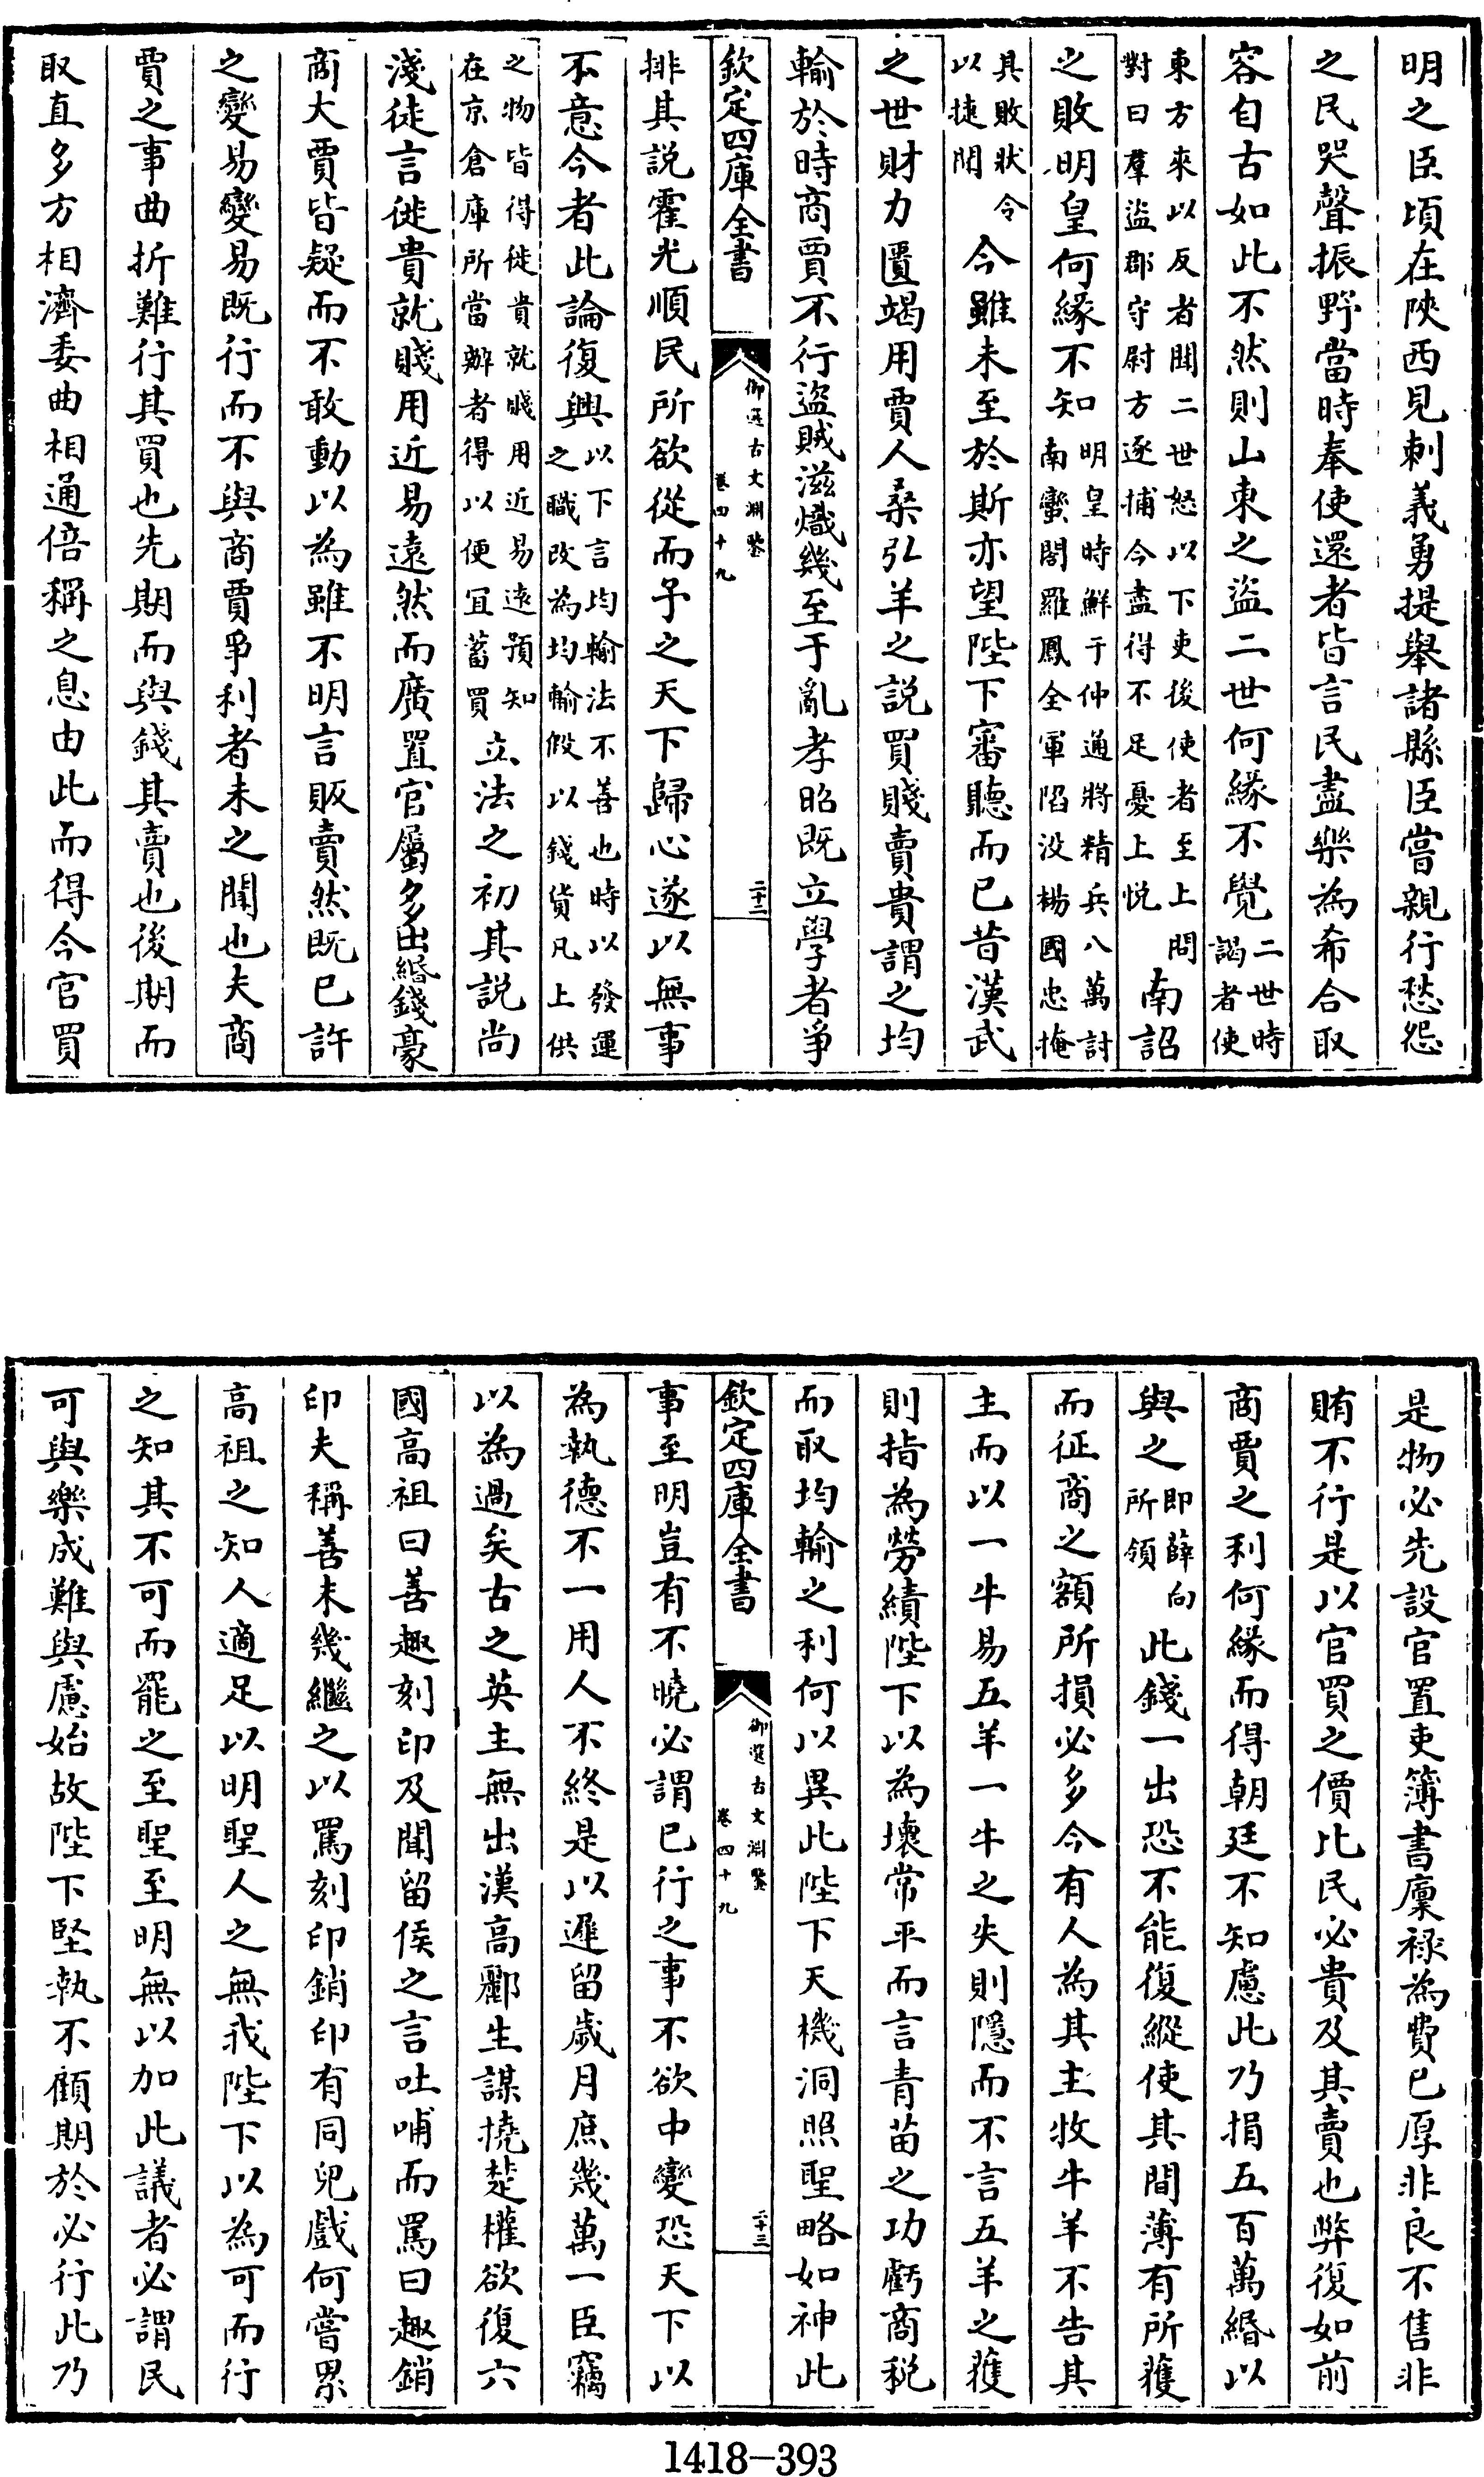 明之臣頃在陜西見刺義勇提舉諸縣臣嘗親行愁怨
之民哭聲振野當時奉使還者皆言民盡樂為希合取
容自古如此不然則山東之盜二世何緣不覺二世時謁者使
東方來以反者聞二世怒以下吏後使者至上問
對曰羣盜郡守尉方逐捕今盡得不足憂上悅南詔
之敗明皇何緣不知明皇時鮮于仲通將精兵八萬討
南蠻閣羅鳳全軍陷沒楊國忠掩
其敗狀令
以捷聞今雖未至於斯亦望陛下審聽而已昔漢武
之世財力匱竭用賈人桑弘羊之說買賤賣貴謂之均
輸於時商賈不行盜賊滋熾幾至于亂孝昭既立學者爭
欽定四庫全書
御選古文淵鑒
卷四十九
二十二
排其說霍光順民所欲從而予之天下歸心遂以無事
不意今者此論復興以下言均輸法不善也時以發運
之職改為均輸假以錢貨凡上供
之物皆得徙貴就賤用近易遠預知
在京倉庫所當辦者得以便宜蓄買立法之初其說尚
淺徒言徙貴就賤用近易遠然而廣置官屬多出緡錢豪
商大賈皆疑而不敢動以為雖不明言販賣然既已許
之變易變易既行而不與商賈爭利者未之聞也夫商
賈之事曲折難行其買也先期而與錢其賣也後期而
取直多方相濟委曲相通倍稱之息由此而得今官買
是物必先設官置吏簿書廩祿為費已厚非良不售非
賄不行是以官買之價比民必貴及其賣也弊復如前
商賈之利何緣而得朝廷不知慮此乃捐五百萬緡以
與之即薛向所領此錢一出恐不能復縱使其間薄有所獲
而征商之額所損必多今有人為其主牧牛羊不告其
主而以一牛易五羊一牛之失則隱而不言五羊之獲
則指為勞績陛下以為壞常平而言青苗之功虧商稅
而取均輸之利何以異此陛下天機洞照聖略如神此
欽定四庫全書
御選古文淵鑒
卷四十九
二十三
事至明豈有不曉必謂已行之事不欲中變恐天下以
為執德不一用人不終是以遲留歲月庶幾萬一臣竊
以為過矣古之英主無出漢高酈生謀撓楚權欲復六
國高祖曰善趣刻印及聞留侯之言吐哺而罵曰趣銷
印夫稱善未幾繼之以罵刻印銷印有同兒戲何嘗累
高祖之知人適足以明聖人之無我陛下以為可而行
之知其不可而罷之至聖至明無以加此議者必謂民
可與樂成難與慮始故陛下堅執不顧期於必行此乃
1418-393